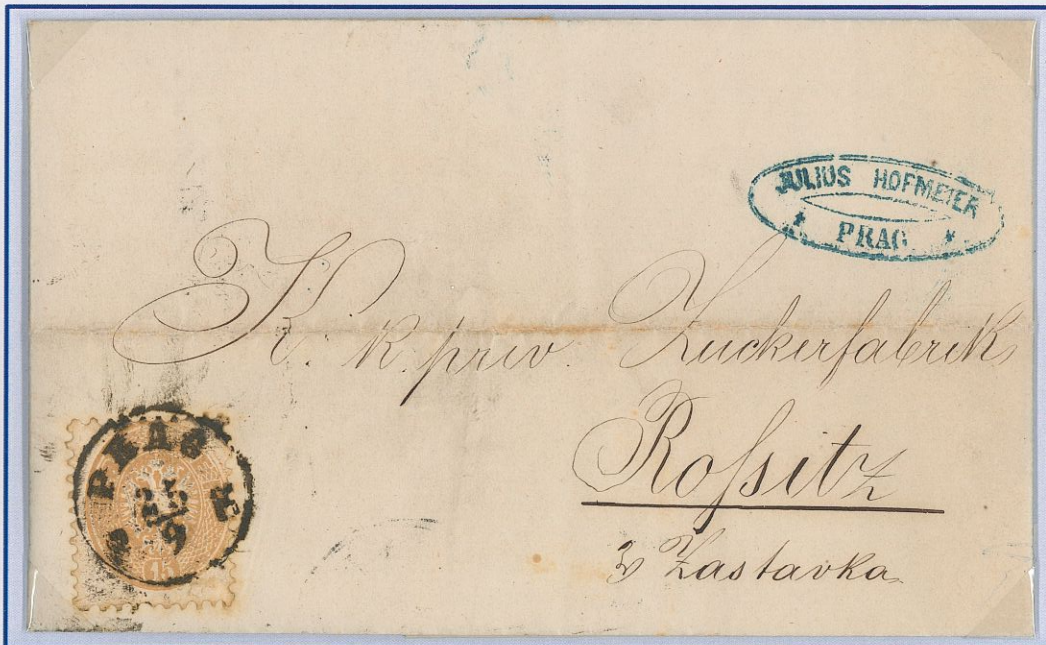 JULIUS HOFMEIER
PRAG
K. k. priv. Zuckerfabrik
Roſsitz
Zastavka
PRAG
25
9
15